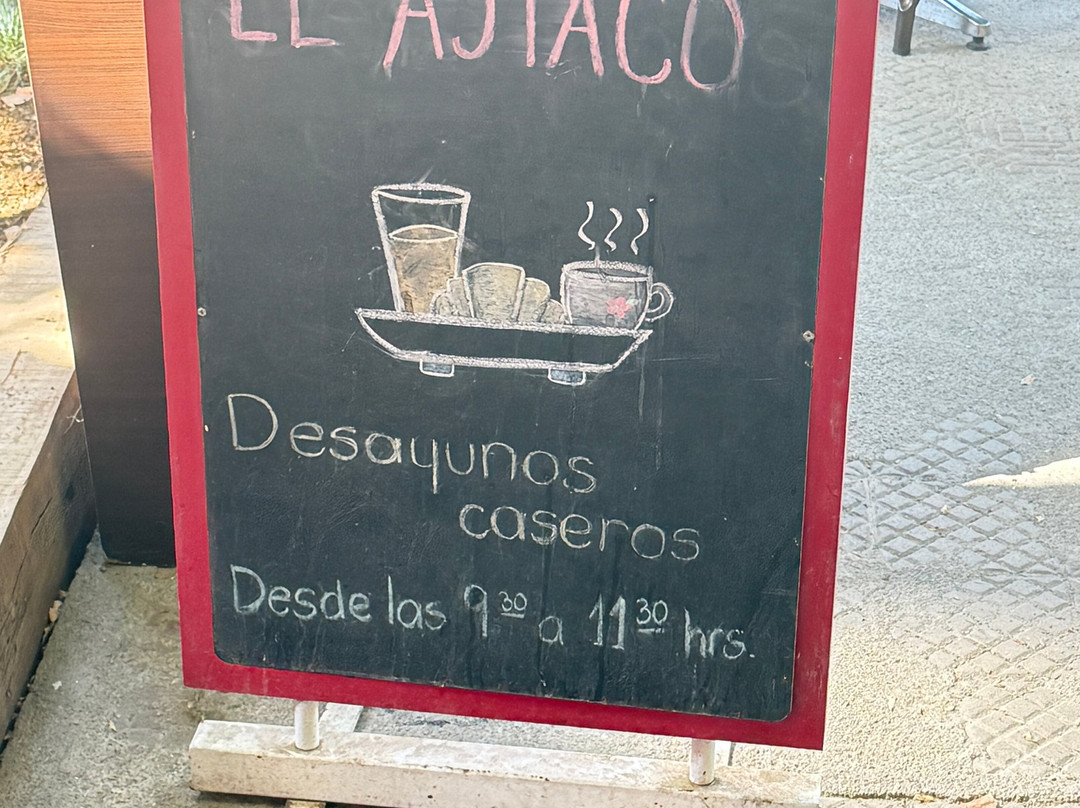 EL AJIACO
Desayunos
caseros
Desde las 9 30 a 11 30 hrs.